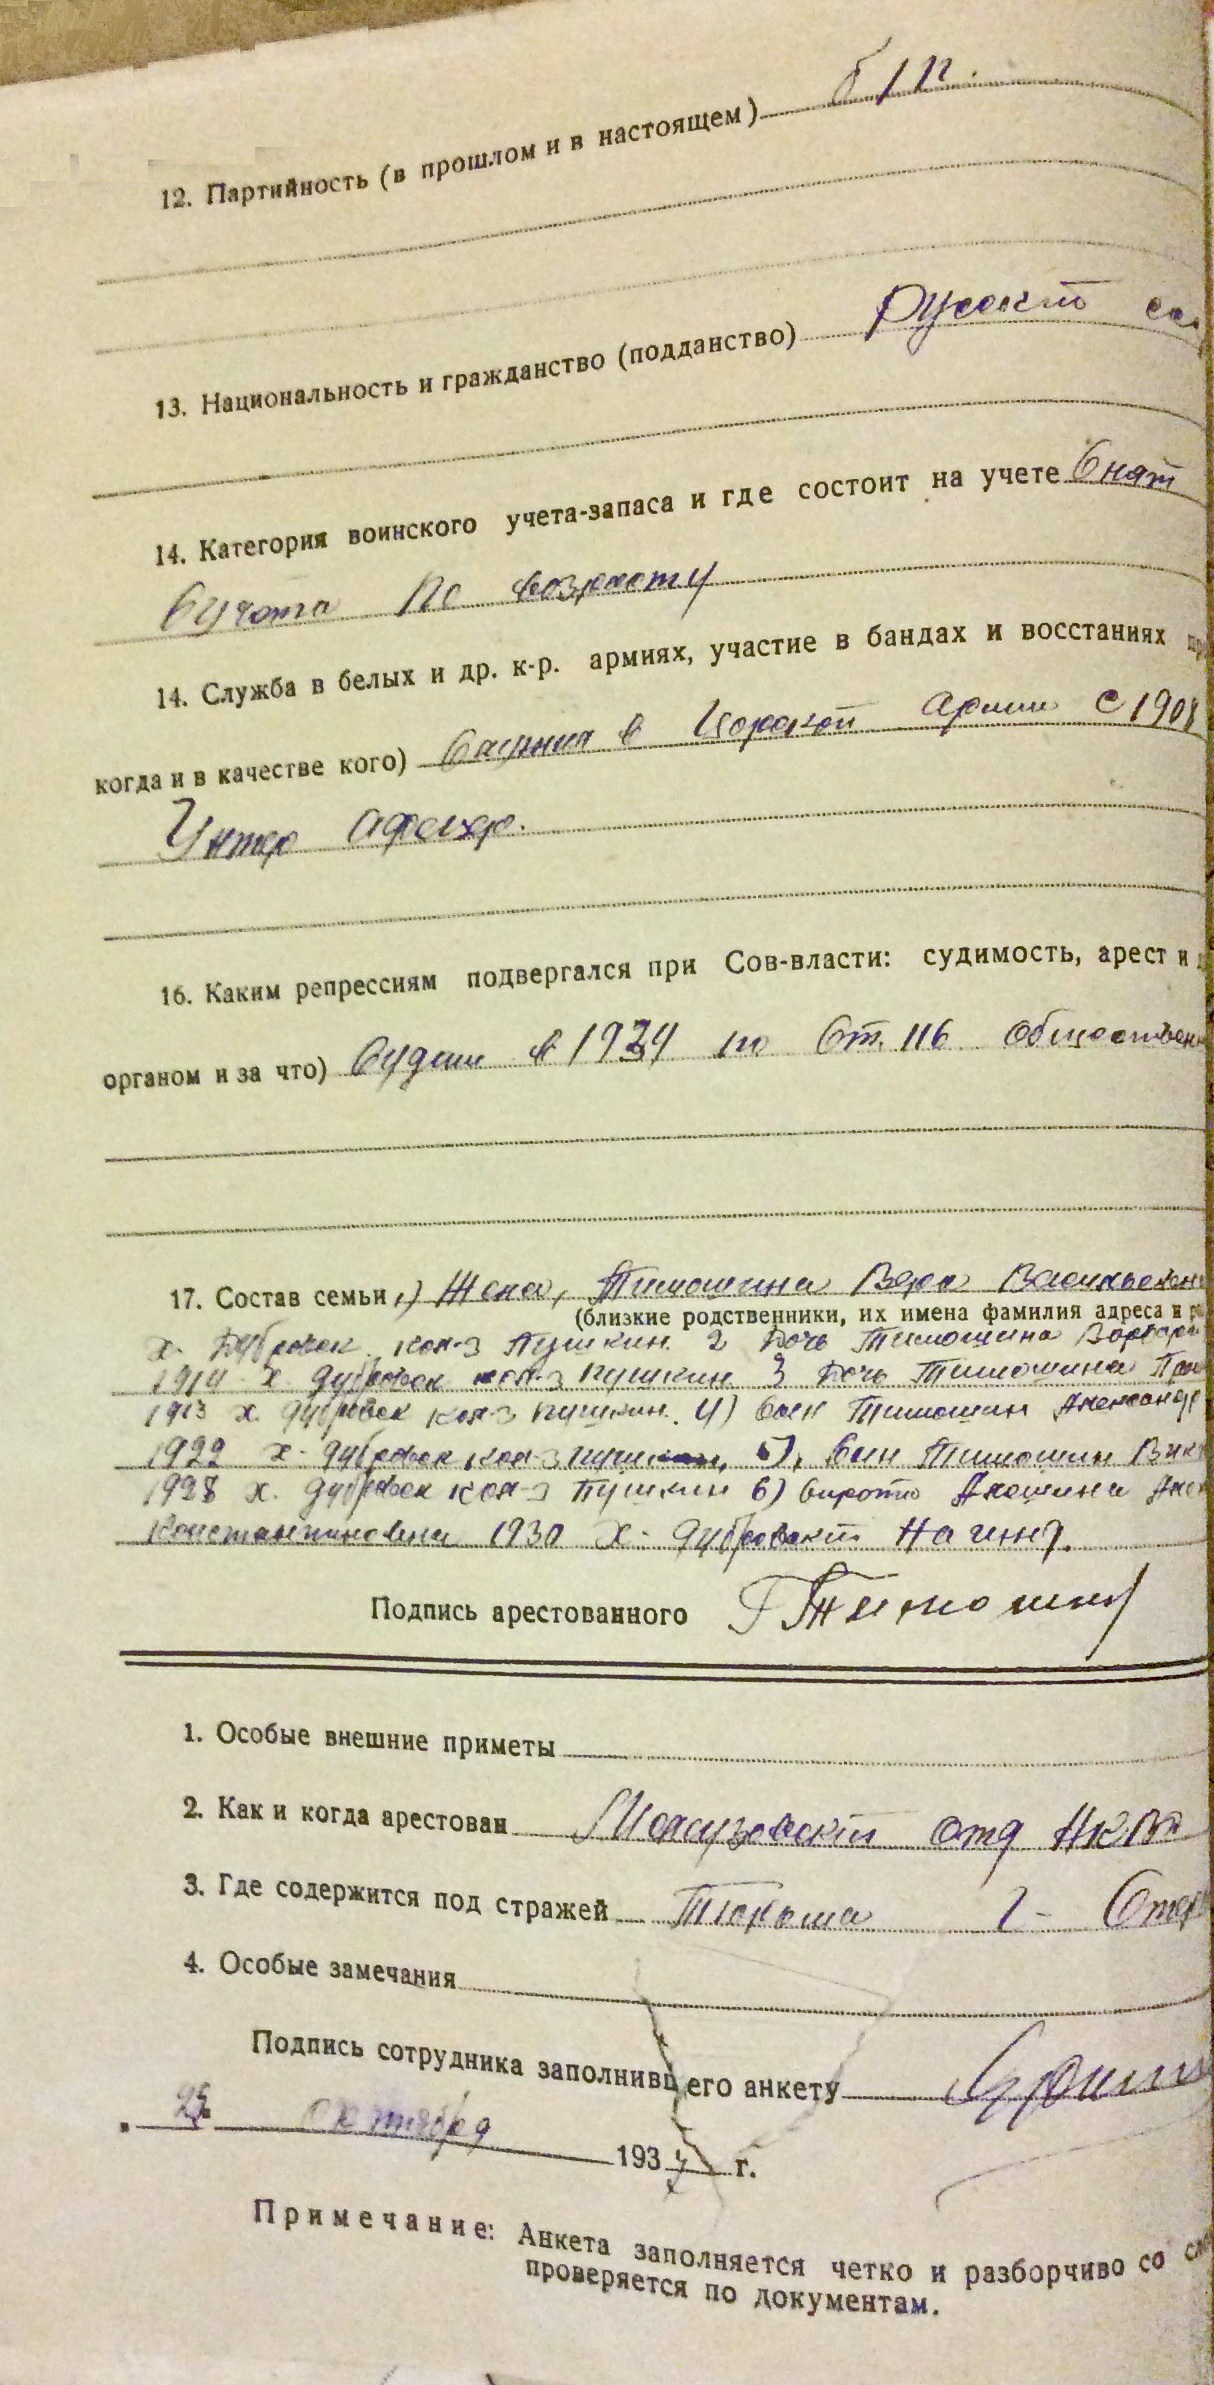 12. Партийность (в прошлом и в настоящем) б/п.
13. Национальность и гражданство (подданство) Русский
14. Категория воинского учета-запаса и где состоит на учете Снят
Сучота по возрасту
14. Служба в белых и др. к-р. армиях, участие в бандах и восстаниях
когда и в качестве кого) Служил в Царской Армии с 1908
Унтер офецер.
16. Каким репрессиям подвергался при Сов-власти: судимость, арест и
органом и за что) Судим в 1934 по Ст. 116
17. Состав семьи 1) Жена, Тимошина Вера
(близкие родственники, их имена фамилия адреса и
х. Дубровск кол-з Пушкин 2 Дочь Тимошина
1914 х Дубровск кол-з Пушкин 3 Дочь Тимошина
1913 х. Дубровск кол-з Пушкин. 4) Сын Тимошин
1922 х. Дубровск кол-з 5), Сын Тимошин
1928 х. Дубровск кол-з Пушкин 6) Сирота
Константиновна 1930 х. Дубровский
Подпись арестованного Тимошин
1. Особые внешние приметы
2. Как и когда арестован отд НКВД
3. Где содержится под стражей Тюрьма г.
4. Особые замечания
Подпись сотрудника заполнивш его анкету
октября 1937 г.
Примечание: Анкета заполняется четко и разборчиво со
проверяется по документам.